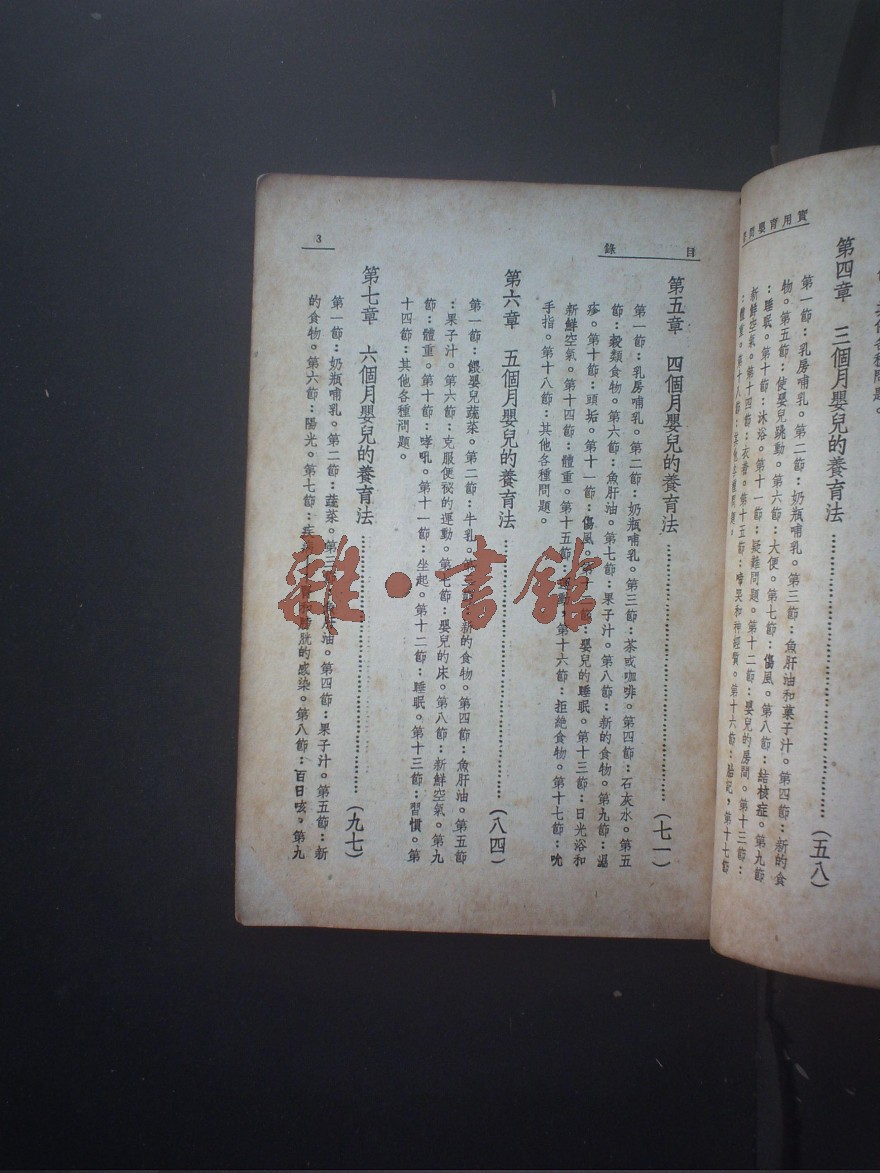 實用育嬰問
其他各種問題。
第四章 三個月嬰兒的養育法……(五八)
第一節:乳房哺乳。第二節:奶瓶哺乳。第三節:魚肝油和菓子汁。第四節:新的食
物。第五節:使嬰兒跳動。第六節:大便。第七節:傷風。第八節:結核症。第九節
:睡眠。第十節:沐浴。第十一節:疑難問題。第十二節:嬰兒的房間。第十三節:
新鮮空氣。第十四節:衣著。第十五節:啼哭和神經質。第十六節:胎記,第十七節
:體重。第十八節:其他各種問題。
目錄
第五章 四個月嬰兒的養育法……(七一)
第一節:乳房哺乳。第二節:奶瓶哺乳。第三節:茶或咖啡。第四節:石灰水。第五
節:穀類食物。第六節:魚肝油。第七節:果子汁。第八節:新的食物。第九節:濕
疹。第十節:頭垢。第十一節:傷風。第十二節:嬰兒的睡眠。第十三節:日光浴和
新鮮空氣。第十四節:體重。第十五節:運動。第十六節:拒絶食物。第十七節:吮
手指。第十八節:其他各種問題。
第六章 五個月嬰兒的養育法……(八四)
第一節:餵嬰兒蔬菜。第二節:牛乳。第三節:新的食物。第四節:魚肝油。第五節
:果子汁。第六節:克服便秘的運動。第七節:嬰兒的床。第八節:新鮮空氣。第九
節:體重。第十節:哮吼。第十一節:坐起。第十二節:睡眠。第十三節:習慣。第
十四節:其他各種問題。
第七章 六個月嬰兒的養育法……(九七)
第一節:奶瓶哺乳。第二節:蔬菜。第三節:魚肝油。第四節:果子汁。第五節:新
的食物。第六節:陽光。第七節:疾病 和膀胱的感染。第八節:百日咳。第九
3
雜·書館